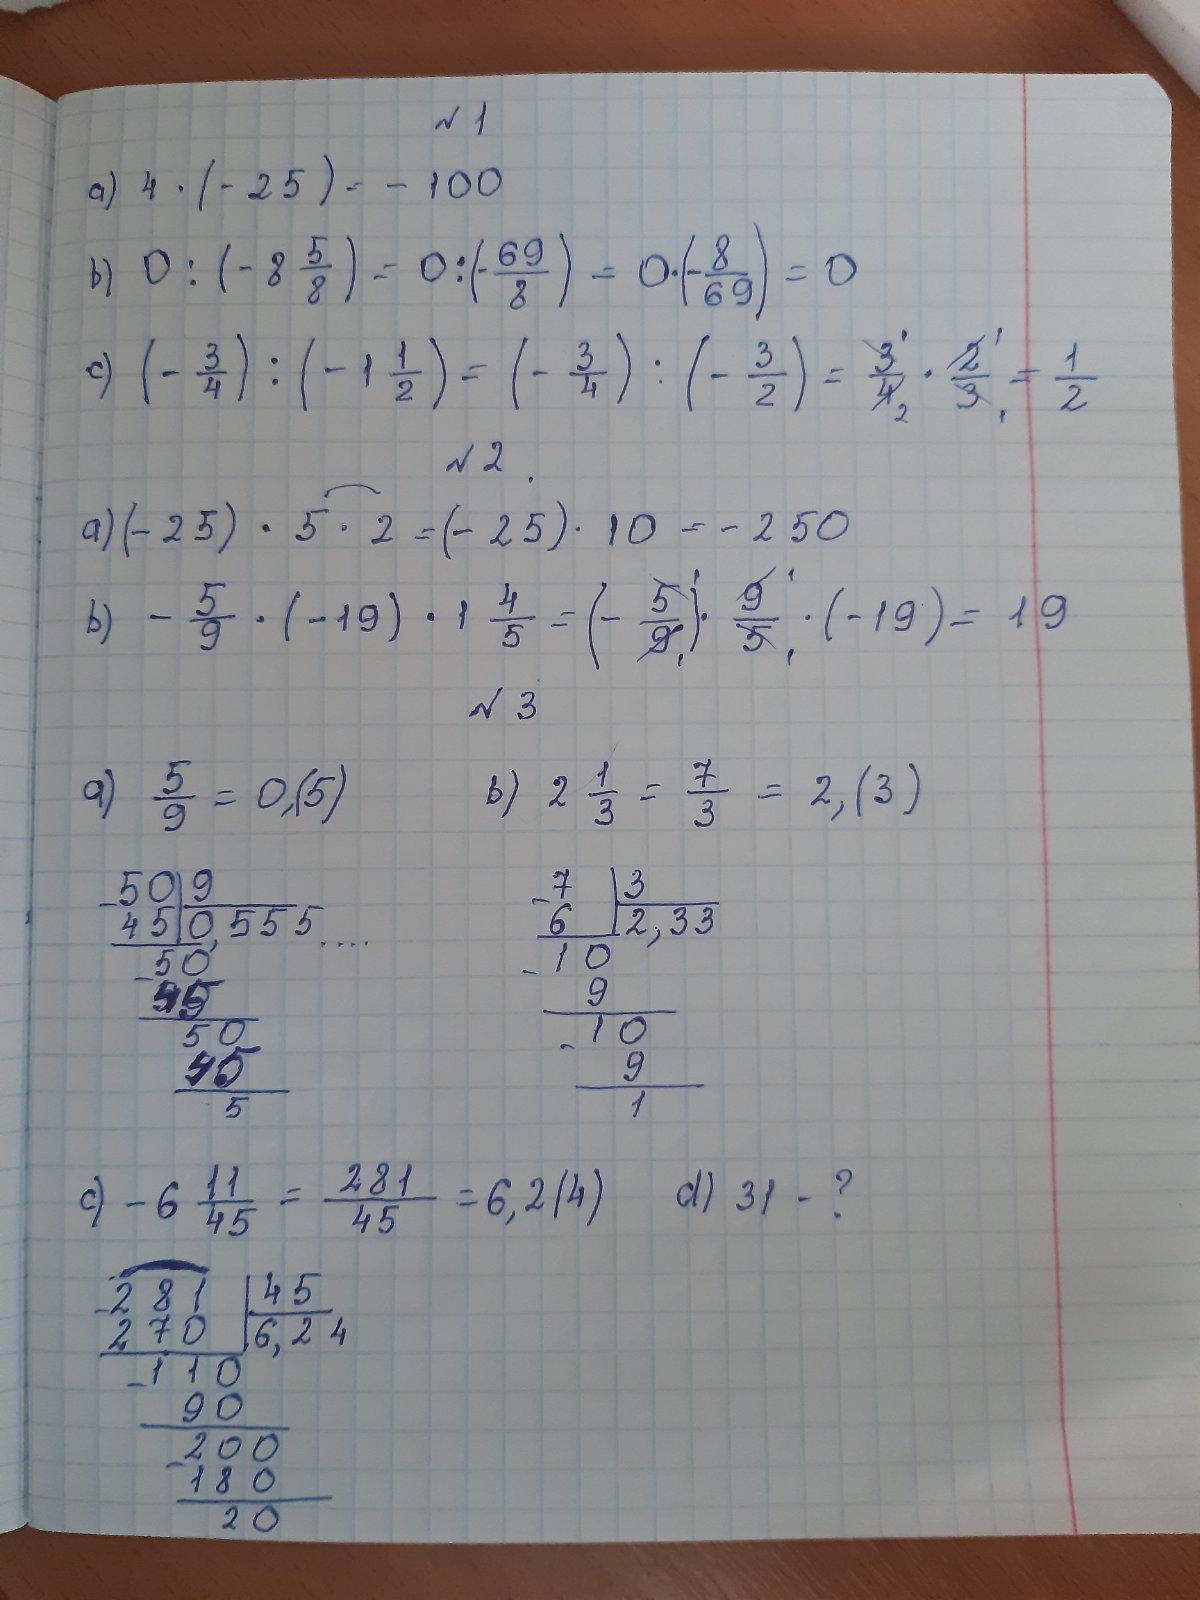 №1
a) 4 · (-25) = - 100
b) 0 : (-8 5/8) = 0 : (-69/8) = 0 · (-8/69) = 0
c) (-3/4) : (-1 1/2) = (-3/4) : (-3/2) = 3/4 · 2/3 = 1/2
№2
a) (-25) · 5 · 2 = (-25) · 10 = -250
b) -5/9 · (-19) · 1 4/5 = (-5/9) · 9/5 · (-19) = 19
№3
a) 5/9 = 0,(5) b) 2 1/3 = 7/3 = 2,(3)
-50 | 9 -7 | 3
45 | 0,555.... 6 | 2,33
-50 -10
45 9
50 -10
45 9
5 1
c) -6 11/45 = 281/45 = 6,2(4) d) 31 - ?
-281 | 45
270 | 6,24
-110
90
-200
180
20